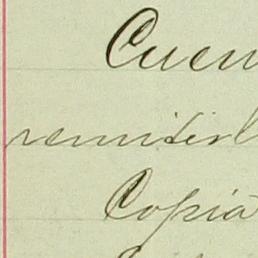 Cuen
remitirl
Copia